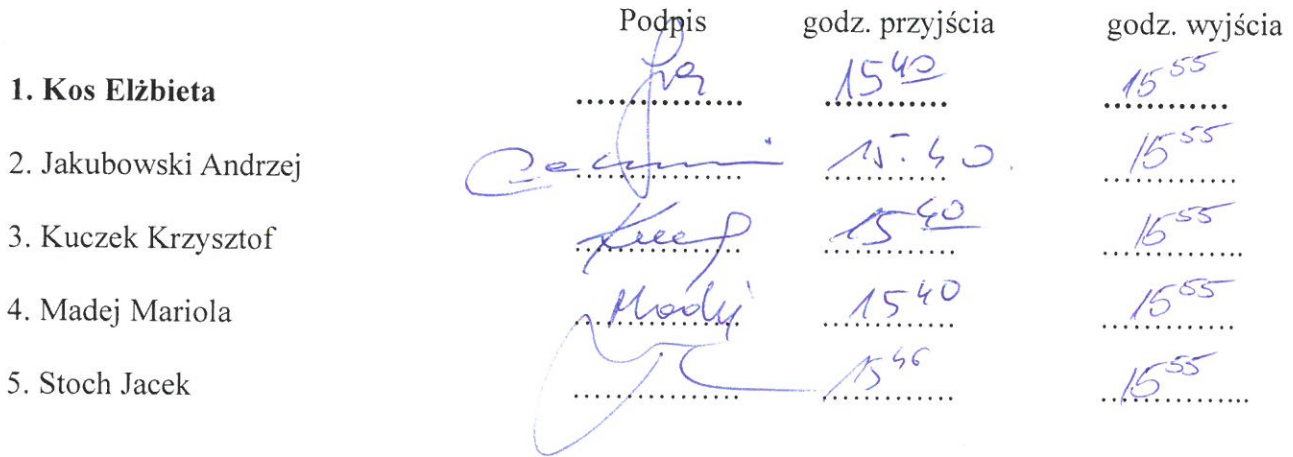 Podpis godz. przyjścia godz. wyjścia
1. Kos Elżbieta .................. 15 40 15 55
2. Jakubowski Andrzej .................. 15.40. 15 55
3. Kuczek Krzysztof .................. 15 40 15 55
4. Madej Mariola .................. 15 40 15 55
5. Stoch Jacek .................. 15 46 15 55